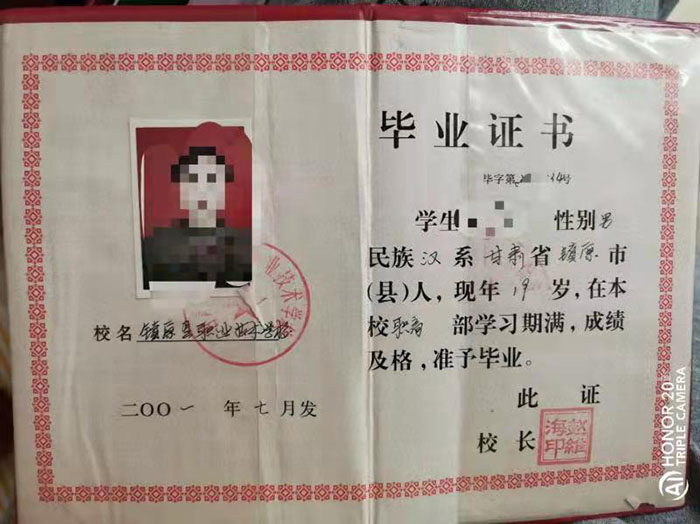 毕业证书
毕字第 14号
学生 性别男
民族汉系甘肃省镇原市
(县)人，现年19岁，在本
校职高部学习期满，成绩
及格，准予毕业。
此 证
校长
海 印
校名 镇原县职业技术学校
业技术学校
二〇〇一年七月发
AI HONOR 20
TRIPLE CAMERA